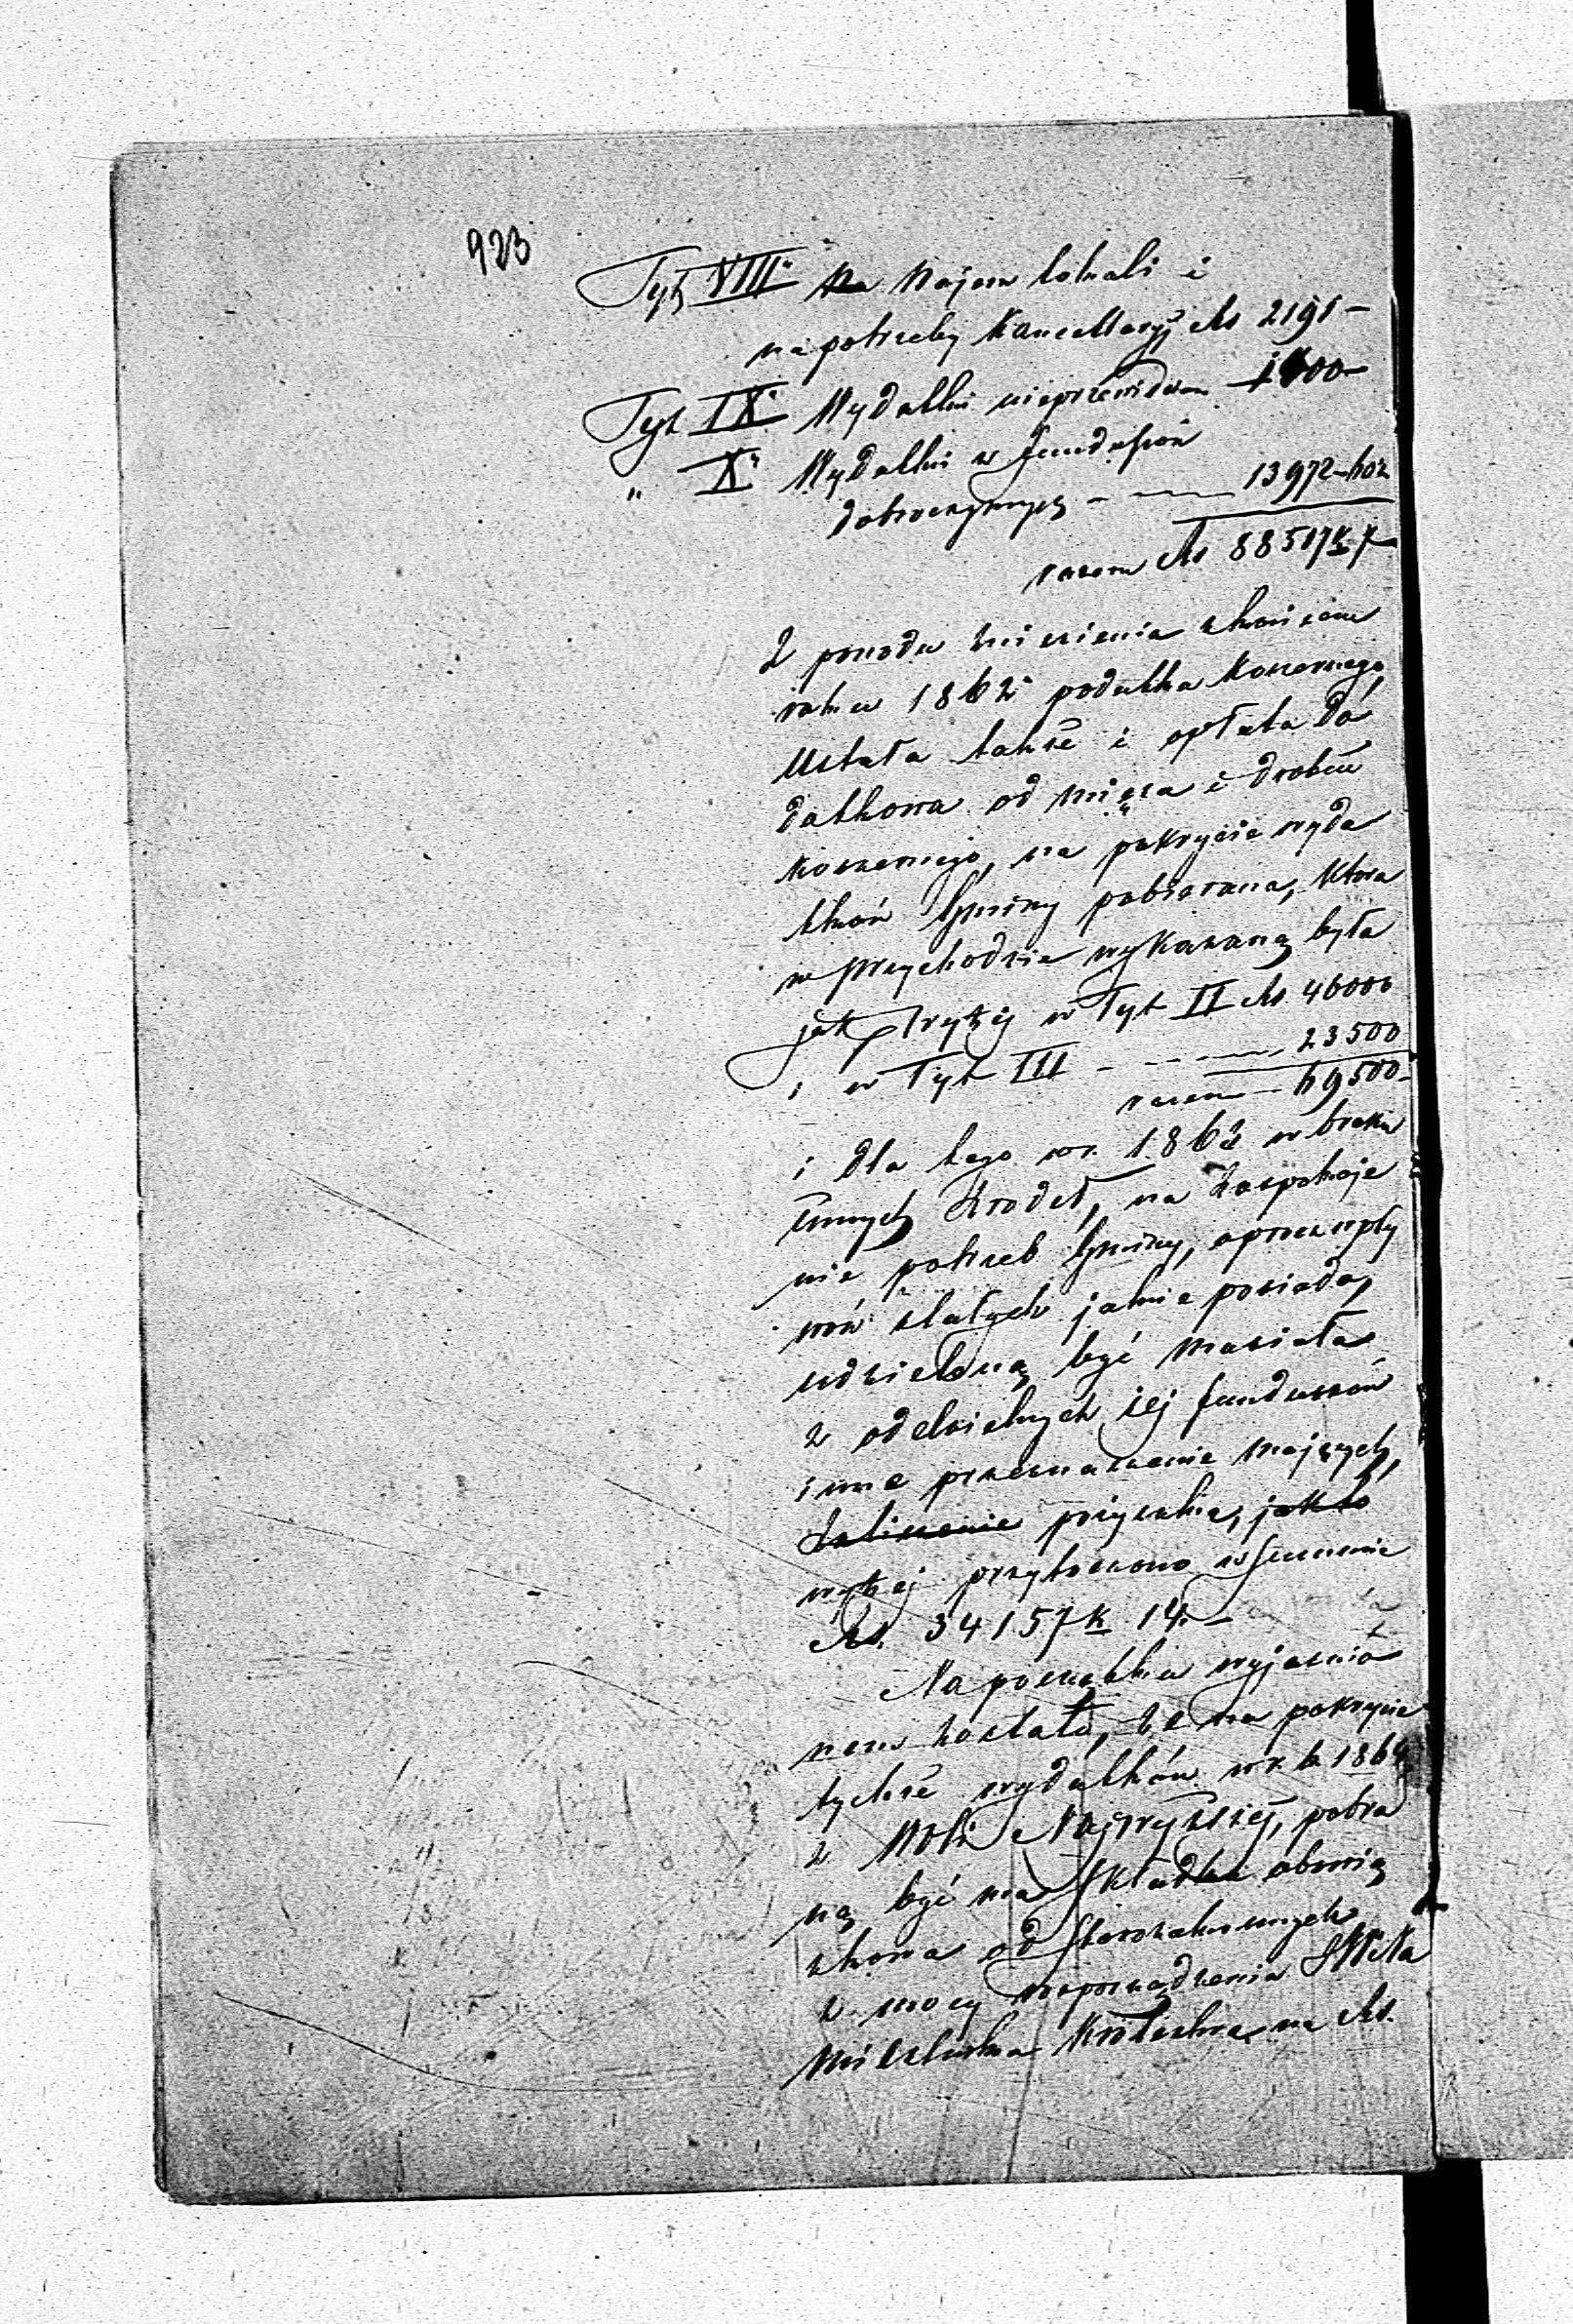 923
Tyt VIII. Na Najem lokali i
na potrzeby Kancellaryi Rs 2191 -
Tyt IX. Wydatki nieprzewidzian 1600 -
" X. Wydatki w funduszów
dobroczynnych - 13972 -
razem Rs 88517 k 7
Z powodu zniesienia z końcem
roku 1862 podatku Koszernego
Ustała także i opłata do
datkowa od mięsa i drobiu
Koszernego, na pokrycie wyda
tków Gminy pobierana, Która
w przychodzie wykazaną była
jak wyżej w Tyt II Rs. 46000
i w Tyt III - 23500
razem 69500 -
i dla tego w r. 1863 w braku
innych źrodeł, na zaspokoje
nie potrzeb Gminy, oprocz wpły
wów stałych jakie posiada,
udzieloną być musiała
z oddzielnych jej funduszów
inne przeznaczenie mających,
pożyczka, jak to
wyżej przytoczono w summie
Rs. 34157 k 14. -
Na początku wyjaśnio
nem zostało, że na pokrycie
tychże wydatków w r. b 1864
z Woli Najwyższej, pobra
ną być ma Składka obowią
zkowa od Starozakonnych
z mocy rozporządzenia JWtKa
Namiestnika Królestwa na Rs.